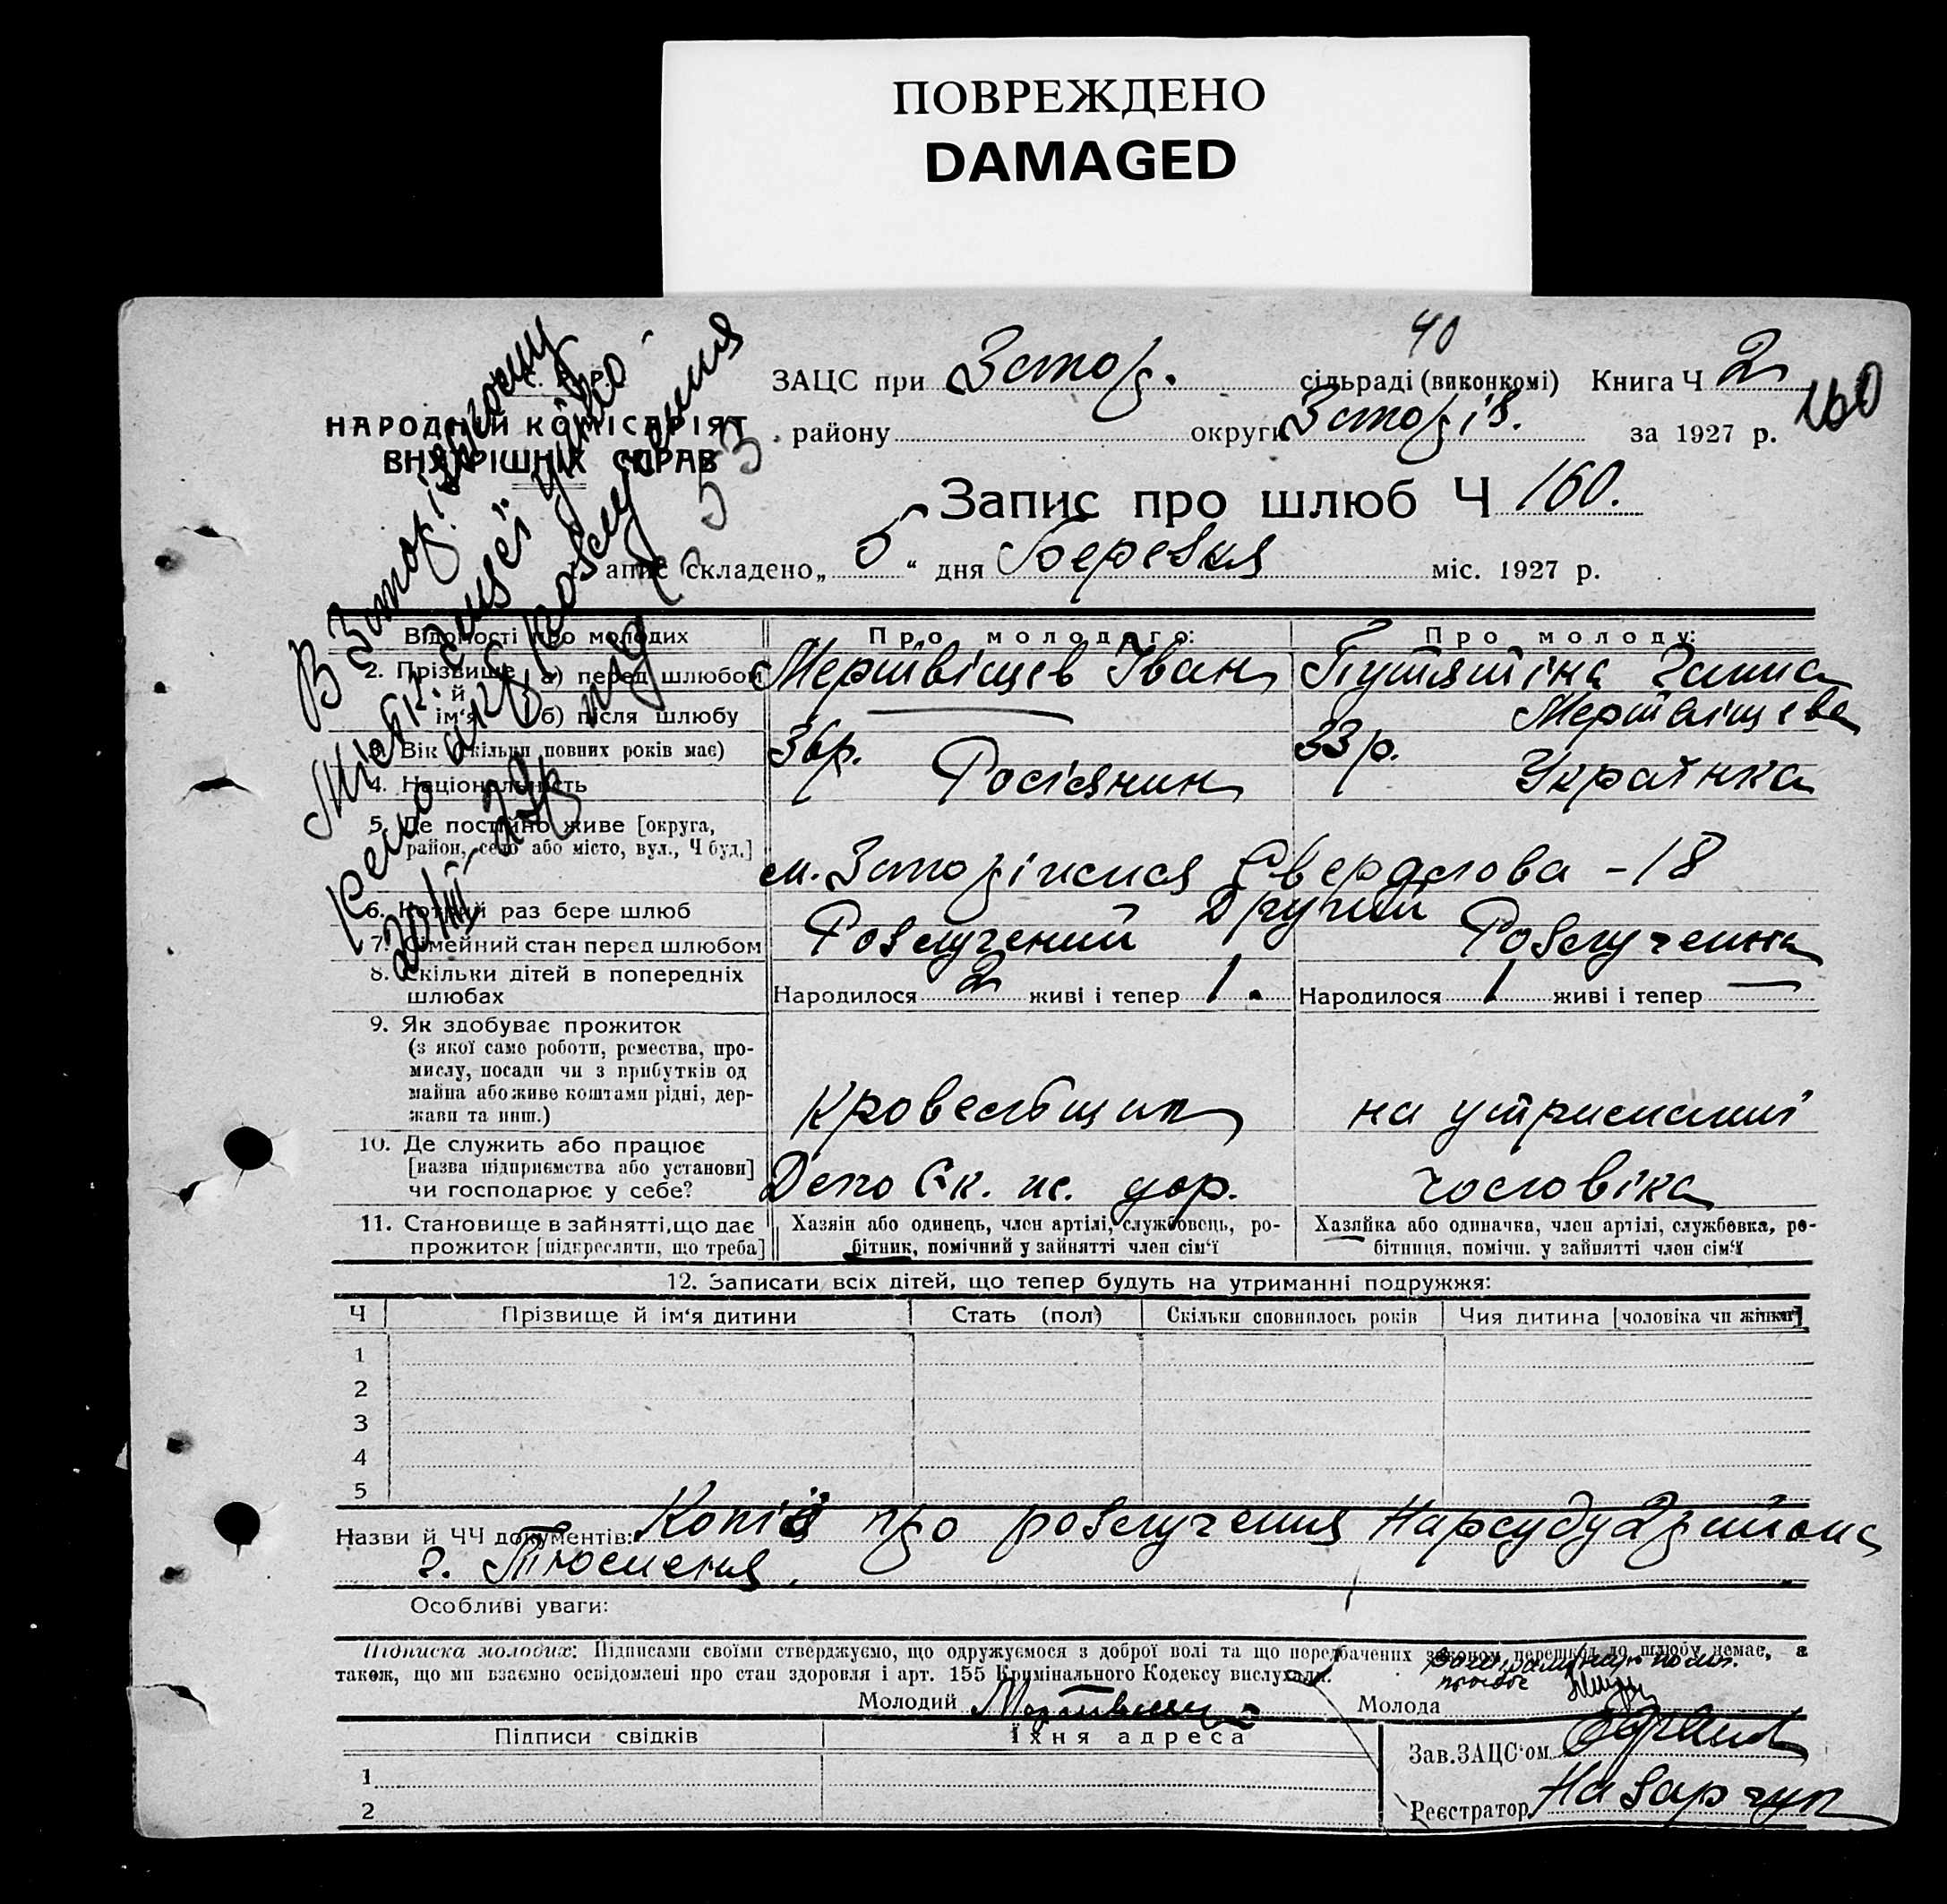 ПОВРЕЖДЕНО
DAMAGED
40
ЗАЦС при Запоріз. сільраді (виконкомі) Книга Ч 2
160
НАРОДНИЙ КОМІСАРІЯТ
ВНУТРІШНІХ СПРАВ
району округи Запоріз. за 1927 р.
Запис про шлюб Ч 160.
Запис складено „5“ дня Березня міс. 1927 р.
В Запорізькому
розлучення
53
Відомості про молодих Про молодого: Про молоду:
2. Прізвище й ім'я а) перед шлюбом Мертвіщев Іван Путятіна Ганна
б) після шлюбу Мертвіщева
3. Вік (скільки повних років має) 36 р. 33 р.
4. Національність Росіянин Українка
5. Де постійно живе [округа, район, село або місто, вул., Ч буд.] м. Запоріжжя Свердлова - 18
6. Котрий раз бере шлюб Другий
7. Сімейний стан перед шлюбом Розлучений Розлучена
8. Скільки дітей в попередніх шлюбах Народилося 2 живі і тепер 1. Народилося 1 живі і тепер —
9. Як здобуває прожиток
(з якої само роботи, ремества, про-
мислу, посади чи з прибутків од
майна або живе коштами рідні, дер-
жави та инш.) Кровельщик на утриманні
10. Де служить або працює
[назва підприємства або установи]
чи господарює у себе? Депо Ек. ж. дор. чоловіка
11. Становище в зайнятті, що дає
прожиток [підкреслити, що треба]
Хазяїн або одинець, член артілі, службовець, ро-
бітник, помічний у зайнятті член сім'ї
Хазяйка або одиначка, член артілі, службовка, ро-
бітниця, помічн. у зайнятті член сім'ї
12. Записати всіх дітей, що тепер будуть на утриманні подружжя:
Ч Прізвище й ім'я дитини Стать (пол) Скільки сповнилось років Чия дитина [чоловіка чи жінки]
1
2
3
4
5
Назви й ЧЧ документів: Копія про розлучення Нарсуду 2 района
г. Тюмень.
Особливі уваги:
Підписка молодих: Підписами своїми стверджуємо, що одружуємося з доброї волі та що передбачених законом перешкод до шлюбу немає, а
також, що ми взаємно освідомлені про стан здоровля і арт. 155 Кримінального Кодексу вислухали.
Молодий Молода
Підписи свідків Їхня адреса
Зав.ЗАЦС'ом
1
Реєстратор Назарчук
2